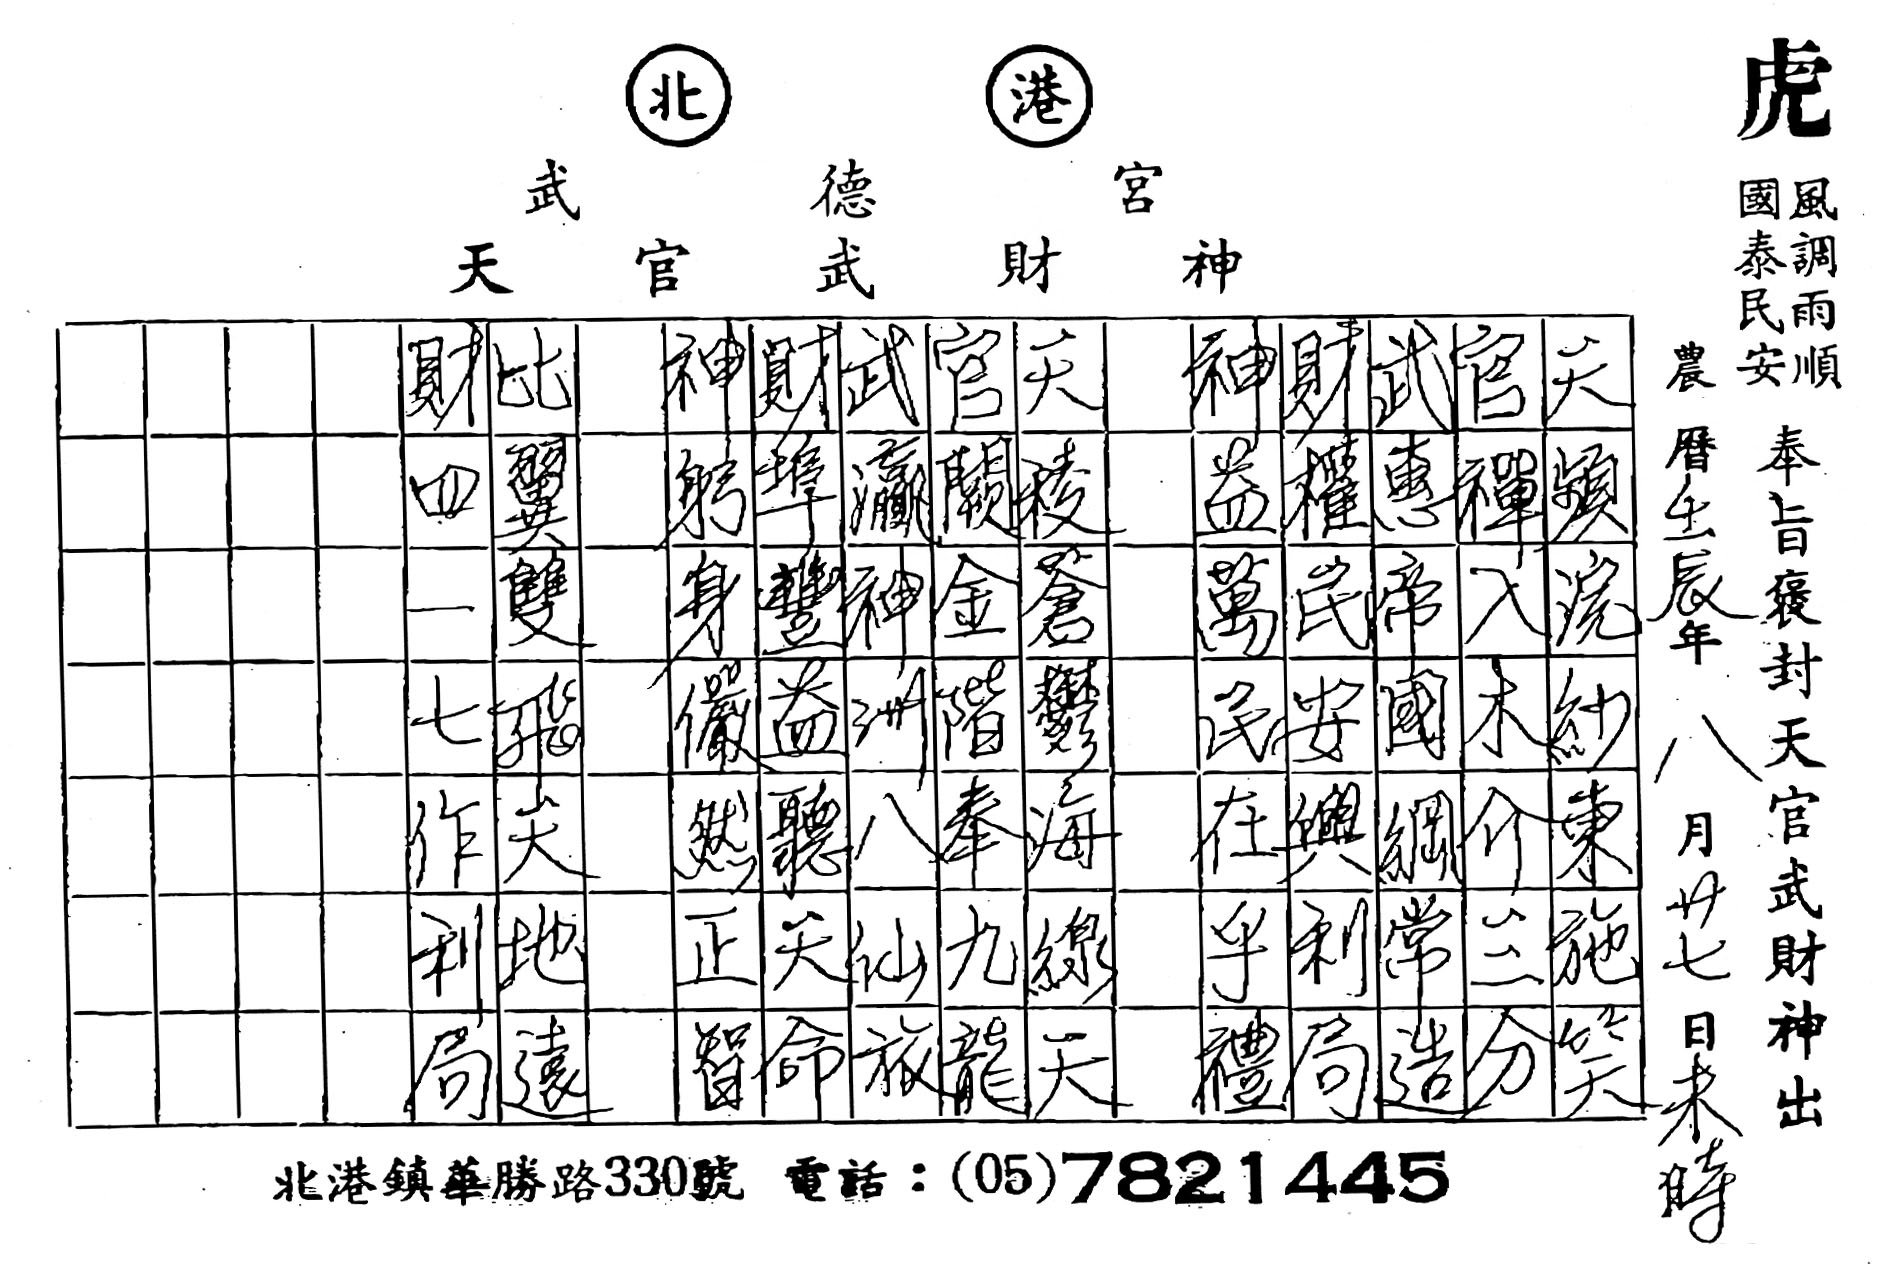 北港
武德宮
天官武財神
虎
風調雨順
國泰民安
奉旨褒封天官武財神出
農曆壬辰年八月廿七日未時
天頻浣紗東施笑
官禪入木介三分
武惠帝國綱常造
財權民安興利局
神益萬民在乎禮
天稜蒼鬱海線天
官闕金階奉九龍
武瀛神洲八仙旅
財埠豐益聽天命
神躬身儼然正智
比翼雙飛天地遠
財四一七作利局
北港鎮華勝路330號 電話：(05)7821445